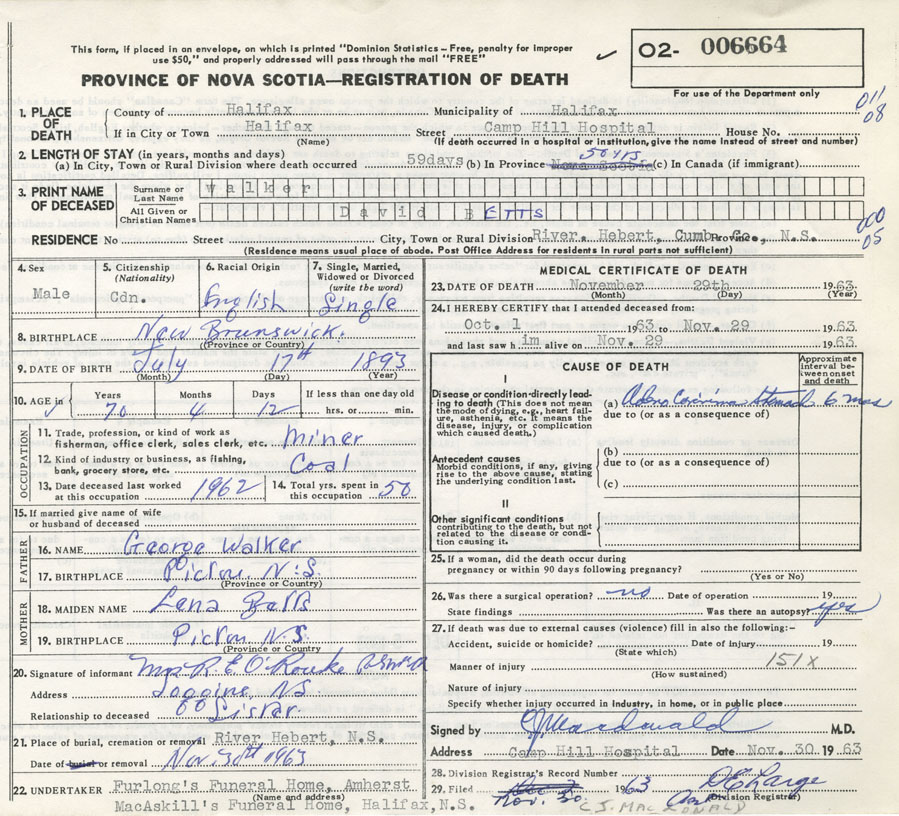 This form, if placed in an envelope, on which is printed "Dominion Statistics – Free, penalty for improper
use $50," and properly addressed will pass through the mail "FREE"
✓ O2- 006664
PROVINCE OF NOVA SCOTIA—REGISTRATION OF DEATH
For use of the Department only
1. PLACE OF DEATH
County of Halifax Municipality of Halifax 011
If in City or Town Halifax Street Camp Hill Hospital House No. 08
(Name) (If death occurred in a hospital or institution, give the name instead of street and number)
2. LENGTH OF STAY (in years, months and days)
(a) In City, Town or Rural Division where death occurred 59days (b) In Province 50 yrs Nova Scotia (c) In Canada (if immigrant)
3. PRINT NAME OF DECEASED
Surname or Last Name Walker
All Given or Christian Names David BETTS
000
RESIDENCE No Street City, Town or Rural Division River Hebert, Cumb. Co., Province N.S. 05
(Residence means usual place of abode. Post Office Address for residents in rural parts not sufficient)
4. Sex Male
5. Citizenship (Nationality) Cdn.
6. Racial Origin English
7. Single, Married, Widowed or Divorced (write the word) Single
8. BIRTHPLACE New Brunswick.
(Province or Country)
9. DATE OF BIRTH July 17th 1893
(Month) (Day) (Year)
10. AGE in Years Months Days If less than one day old
✓ 70 4 12 hrs. or min.
OCCUPATION
11. Trade, profession, or kind of work as
fisherman, office clerk, sales clerk, etc. Miner
12. Kind of industry or business, as fishing,
bank, grocery store, etc. Coal
13. Date deceased last worked at this occupation 1962
14. Total yrs. spent in this occupation 50
15. If married give name of wife
or husband of deceased
FATHER
16. NAME George Walker
17. BIRTHPLACE Pictou N.S.
(Province or Country)
MOTHER
18. MAIDEN NAME Lena
19. BIRTHPLACE Pictou N.S.
(Province or Country)
20. Signature of informant Mrs R E O'Rourke
Address Joggins, NS
Relationship to deceased Sister
21. Place of burial, cremation or removal River Hebert, N.S.
Date of burial or removal Nov 30th 1963
22. UNDERTAKER Furlong's Funeral Home, Amherst
(Name and address)
MacAskill's Funeral Home, Halifax, N.S.
MEDICAL CERTIFICATE OF DEATH
23. DATE OF DEATH November 29th 1963
(Month) (Day) (Year)
24. I HEREBY CERTIFY that I attended deceased from:
Oct. 1 1963 to Nov. 29 1963
and last saw him alive on Nov. 29 1963
CAUSE OF DEATH
Approximate interval between onset and death
I
Disease or condition directly leading to death (This does not mean the mode of dying, e.g., heart failure, asthenia, etc. It means the disease, injury, or complication which caused death.)
(a) Stomach 6 mos
due to (or as a consequence of)
Antecedent causes
Morbid conditions, if any, giving rise to the above cause, stating the underlying condition last.
(b)
due to (or as a consequence of)
(c)
II
Other significant conditions
contributing to the death, but not related to the disease or condition causing it.
25. If a woman, did the death occur during
pregnancy or within 90 days following pregnancy?
(Yes or No)
26. Was there a surgical operation? no Date of operation 19
State findings Was there an autopsy? yes
27. If death was due to external causes (violence) fill in also the following:–
Accident, suicide or homicide? Date of injury 19
(State which)
Manner of injury 151X
(How sustained)
Nature of injury
Specify whether injury occurred in industry, in home, or in public place
Signed by CJ Macdonald M.D.
Address Camp Hill Hospital Date Nov. 30 1963
28. Division Registrar's Record Number
29. Filed Nov. 30 1963 D E Large
Division Registrar
C.J. MACDONALD